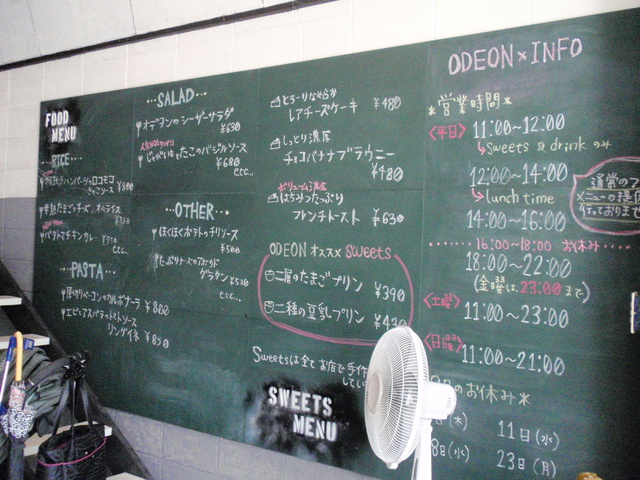 FOOD
MENU
…RICE…
¥800
バタトマチキンカレー
…PASTA…
厚切りベーコンのカルボナーラ ¥800
エビとアスパラのトマトソース
リングイネ ¥850
…SALAD…
オデヲンのシーザーサラダ
¥630
じゃがいもとたこのバジルソース
¥680
etc...
…OTHER…
ほくほくポテトのチリソース
¥500
グラタン ¥530
etc...
とろーりなめらか
レアチーズケーキ ¥480
しっとり濃厚
チョコバナナブラウニー
¥480
ボリューム満点
はちみつたっぷり
フレンチトースト ¥630
ODEON オススメ sweets
二層のたまごプリン
¥390
二種の豆乳プリン
Sweetsは全てお店で手作
SWEETS
MENU
ODEON×INFO
*営業時間*
<平日> 11:00~12:00
sweets & drink のみ
12:00~14:00
lunch time
14:00~16:00
16:00~18:00 お休み
18:00~22:00
(金曜は23:00まで)
<土曜> 11:00~23:00
<日曜> 11:00~21:00
通常のフ
メニューの提供
行っておりま
のお休み*
(木) 11日(水)
8日(水) 23日(月)